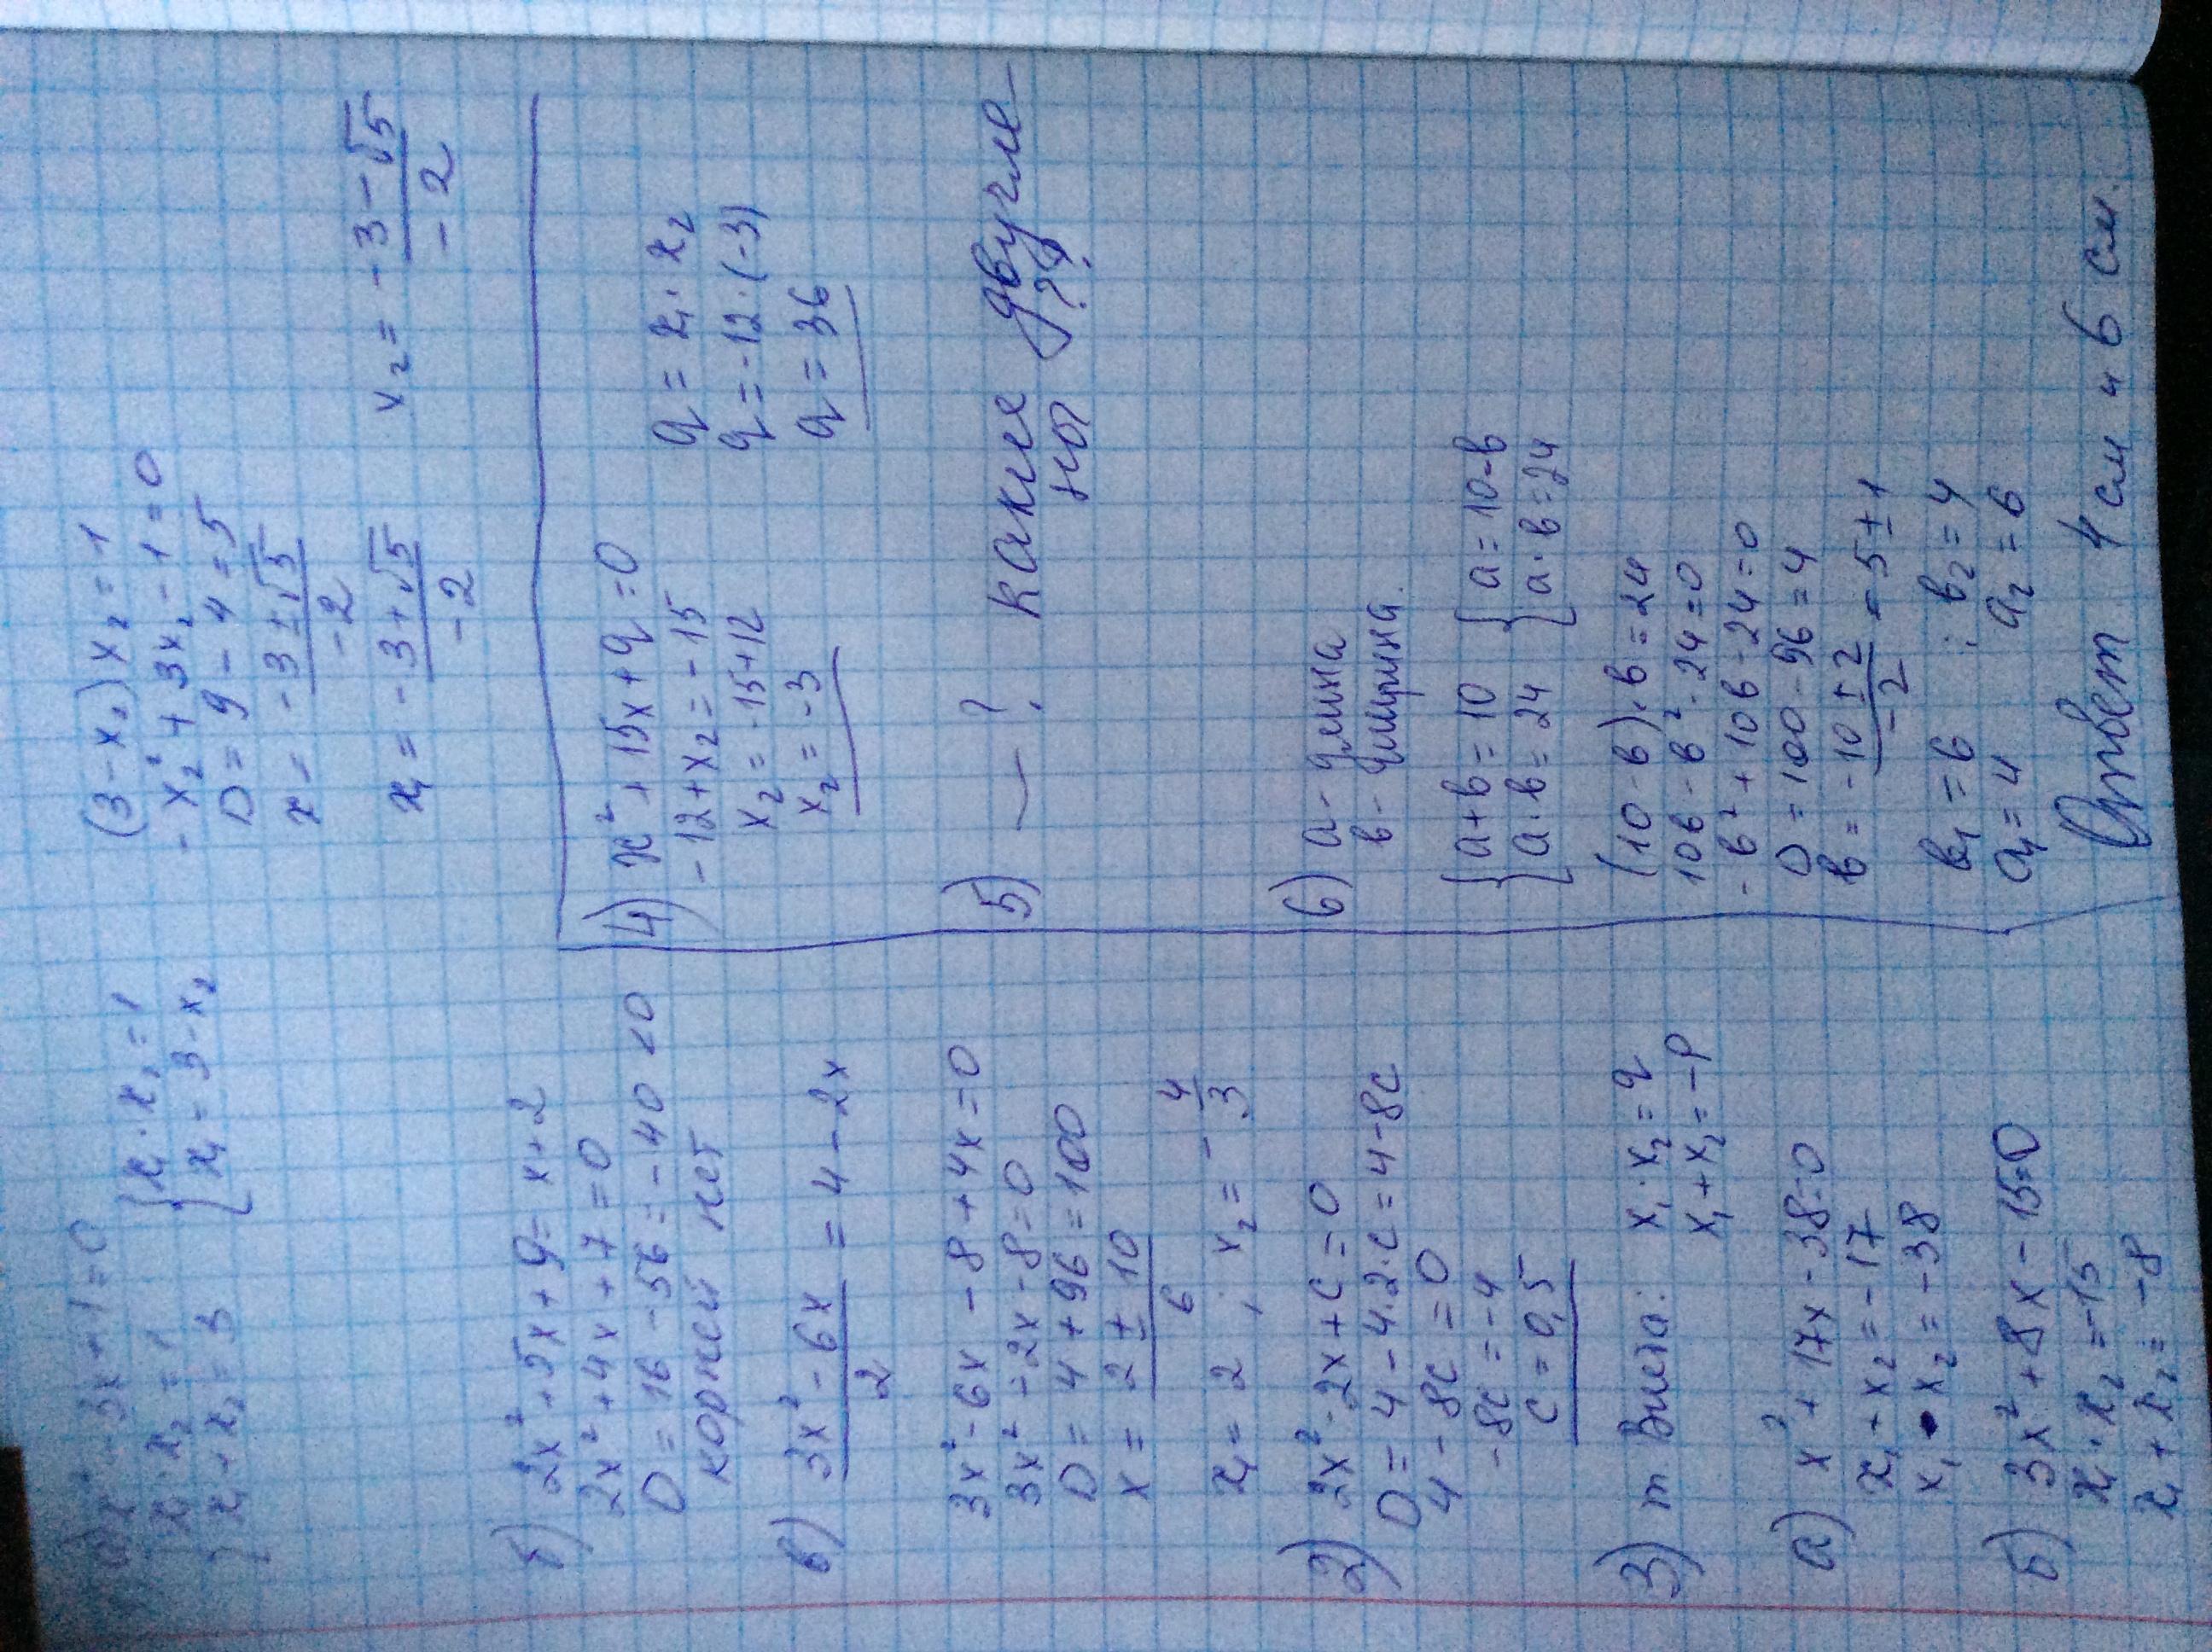 а) x² - 3x + 1 = 0
{ x₁ · x₂ = 1
x₁ + x₂ = 3
{ x₁ · x₂ = 1
x₁ = 3 - x₂
(3 - x₂) x₂ = 1
- x₂² + 3x₂ - 1 = 0
D = 9 - 4 = 5
x = (-3 ± √5)/(-2)
x₁ = (-3 + √5)/(-2)
x₂ = (-3 - √5)/(-2)
б) 2x² + 5x + 9 = x + 2
2x² + 4x + 7 = 0
D = 16 - 56 = - 40 < 0
корней нет
в) (3x² - 6x)/2 = 4 - 2x
3x² - 6x - 8 + 4x = 0
3x² - 2x - 8 = 0
D = 4 + 96 = 100
x = (2 ± 10)/6
x₁ = 2 ; x₂ = - 4/3
2) 2x² - 2x + c = 0
D = 4 - 4·2·c = 4 - 8c
4 - 8c = 0
-8c = -4
c = 0,5
3) т. Виета: x₁ · x₂ = q
x₁ + x₂ = -p
а) x² + 17x - 38 = 0
x₁ + x₂ = -17
x₁ · x₂ = -38
б) 3x² + 8x - 15 = 0
x₁ · x₂ = -15
x₁ + x₂ = -8
4) x² + 15x + q = 0
-12 + x₂ = -15
x₂ = -15 + 12
x₂ = -3
q = x₁ · x₂
q = -12 · (-3)
q = 36
5) — ? какие двучле-
ны ??
6) a - длина
b - ширина.
{ a + b = 10
a · b = 24
{ a = 10 - b
a · b = 24
(10 - b) · b = 24
10b - b² - 24 = 0
- b² + 10b - 24 = 0
D = 100 - 96 = 4
b = (-10 ± 2)/(-2) = 5 ± 1
b₁ = 6 ; b₂ = 4
a₁ = 4 a₂ = 6
Ответ 4 см и 6 см.